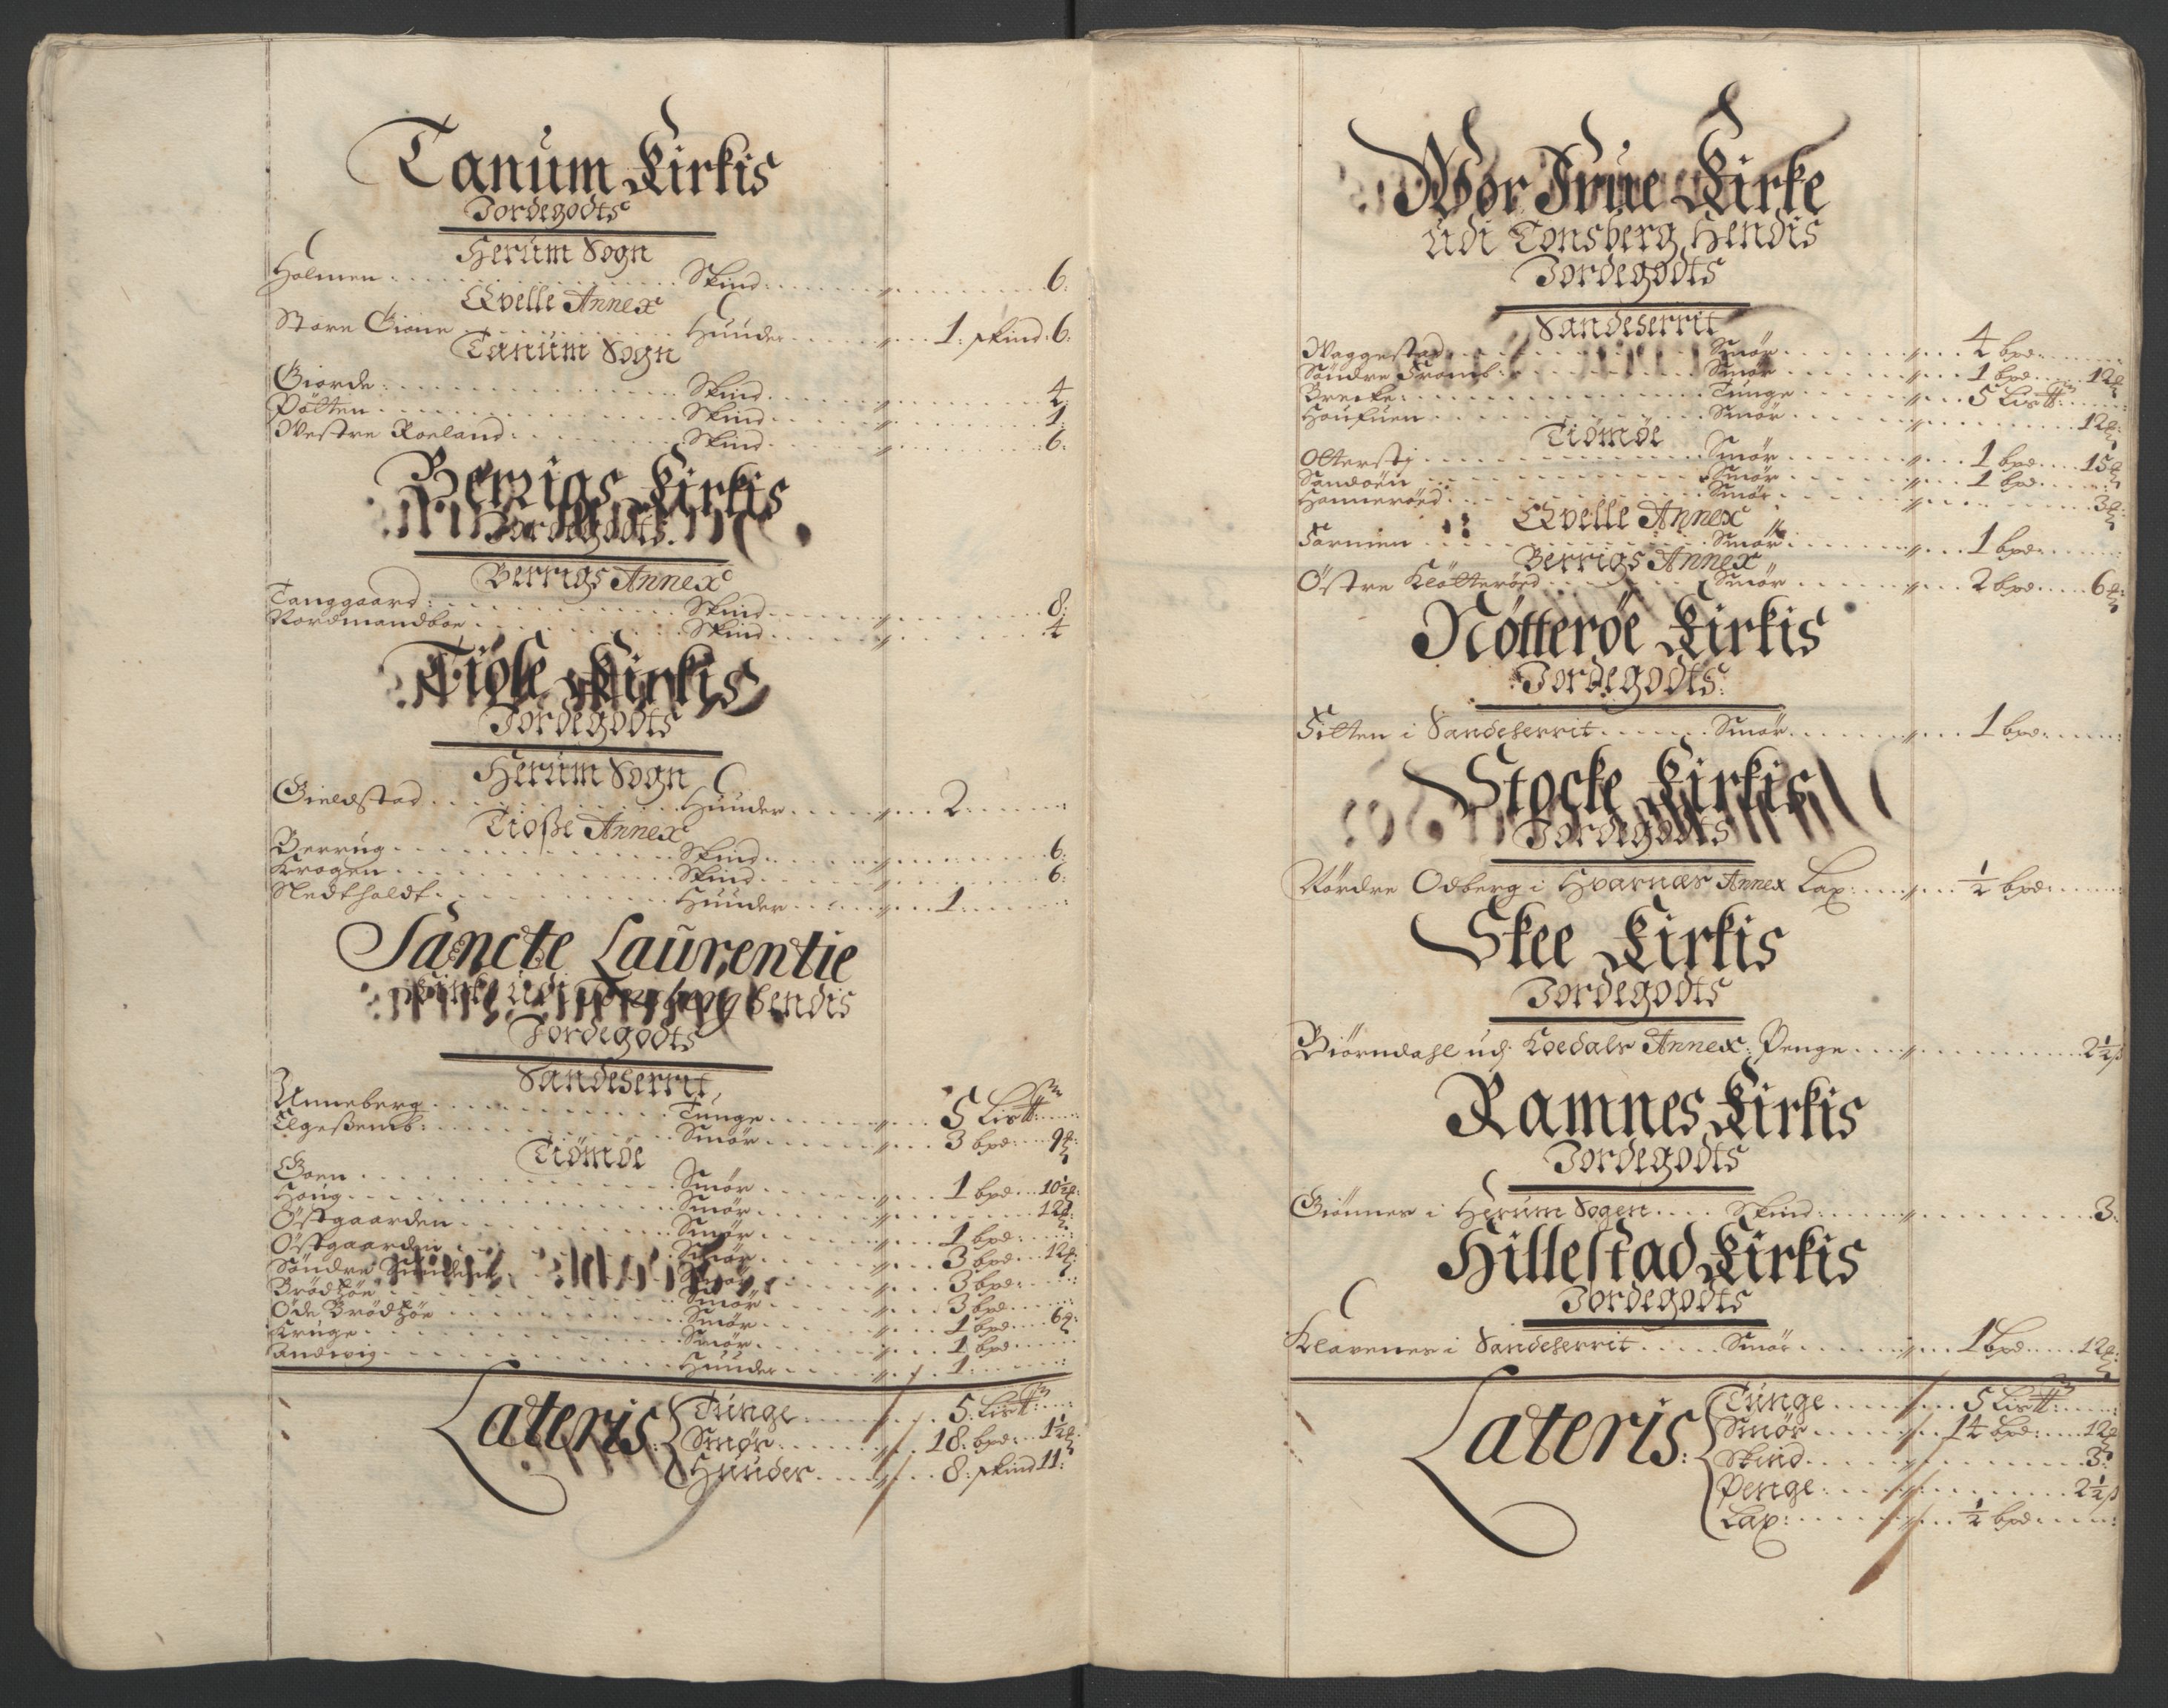 Tanum Kirkis
Jordegodts
Herum Sogn
Holmen Skind 6
Qvelle Annex
Store Gione Huuder 1: skind: 6
Tanum Sogn
Giorde Skind 4
Pøtten Skind 1
Westre Roeland Skind 6
Berrigs Kirkis
Jordegodts
Berrigs Annex
Tanggaard Skind 8
Nordmandboe Skind 4
Tiøse Kirkis
Jordegodts
Herum Sogn
Gieldstad Huuder 2
Tioße Annex
Berrug Skind 6
Krogen Skind 6
Nedtholdt Huuder 1
Sancte Laurentie
Kirke udi Tonsberg hendis
Jordegodts
Sandeserrit
Unneberg Tunge 5 Lis℔
Elgeßemb Smør 3 bpd 9
Tiømøe
Goen Smør 1 bpd 10½
Houg Smør 12
Østgaarden Smør 1 bpd
Østgaarden Smør 3 bpd 12
Søndre Smør 3 bpd
Brødtzøe Smør 3 bpd
Øde Brødtzøe Smør 1 bpd 6
Kruge Smør 1 bpd
Huuder 1
Lateris Tunge 5 Lis℔
Smør 18 bpd 1½
Huuder 8: skind 11
Wor Frue Kirke
udi Tonsberg Hendis
Jordegodts
Sandeserrit
Waggestad Smør 4 bpd
Søndre Fromb Smør 1 bpd 12
Brecke Tunge 5 Lis℔
Houfuen Smør 12
Tiømøe
Oltersti Smør 1 bpd 15
Sandøen Smør 1 bpd
Honnerød Smør 3
Qvelle Annex
Farmen Smør 1 bpd
Berrigs Annex
Østre Kløtterød Smør 2 bpd 6
Nøtterøe Kirkis
Jordegodts
Filten i Sandeserrit Smør 1 bpd
Stocke Kirkis
Jordegodts
Nordre Odberg i Hvarnæs Annex Lax ½ bpd
Skee Kirkis
Jordegodts
Biørndahl udj Koedals Annex Penge 2½ ß
Ramnes Kirkis
Jordegodts
Giønnes i Herum Sogen Skind 3
Hillestad Kirkis
Jordegodts
Klavenes i Sandeserrit Smør 1 bpd 12
Lateris Tunge 5 Lis℔
Smør 14 bpd 12
Skind 3
Penge 2½ ß
Lax ½ bpd